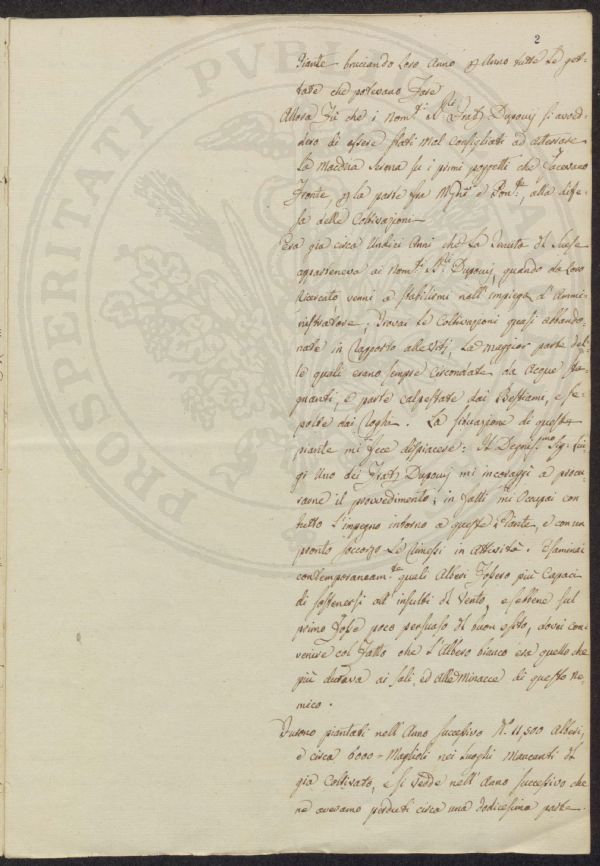 2
Piante bruciando Loro Anno p Anno tutte le get-
tate che potevano Fare
Allora Fù che i Nom.ti S.ri Frat.j Dupouy si avvid-
dero di essere stati mal Consigliati ad atterrare
La macchia Serena su i primi poggetti che Facevano
Fronte, p la parte fra M e Pon.te, alla diffe-
sa delle Coltivazioni
Era già circa Undici Anni che La Tenuta di
apparteneva ai Nom.ti S.ri Dupouy, quando da Loro
Ricercato, venni a stabilirmi nell'impiego d'Ammi-
nistratore; Trovai le Coltivazioni quasi abbando-
nate in Rapporto alle Vitj, La maggior parte del-
le quali erano sempre Circondate da Acque sta-
gnanti, e parte calpestate dai Bestiami, e se-
polte dai Roghi. La situazione di queste
piante mi fece dispiacere: Il Degniss.mo Sig. Lui-
gi Uno dei Frat.j Dupouy mi incoraggì a procu-
rarne il provvedimento; in Fatti mi Occupai con
tutto L'impegno intorno a queste Piante, e con un
pronto soccorso Le Rimessi in attività. Esaminai
contemporaneam.te quali Alberi Fossero più Capaci
di sostenersi all'insulti di Vento, e sebbene sul
primo Fosse poco persuaso di buon esito, dovei con-
venire col Fatto che l'Albero bianco era quello che
più durava ai sali, ed alle Minacce di questo Ne-
mico.
Furono piantati nell'Anno successivo N.o 11,500 Alberi,
e circa 6000 - Maglioli nei Luoghi Mancanti di
già Coltivato, e si vedde nell'Anno successivo che
ne avevamo perduti circa una dodicesima parte.
PROSPERITATI PVBLICAE